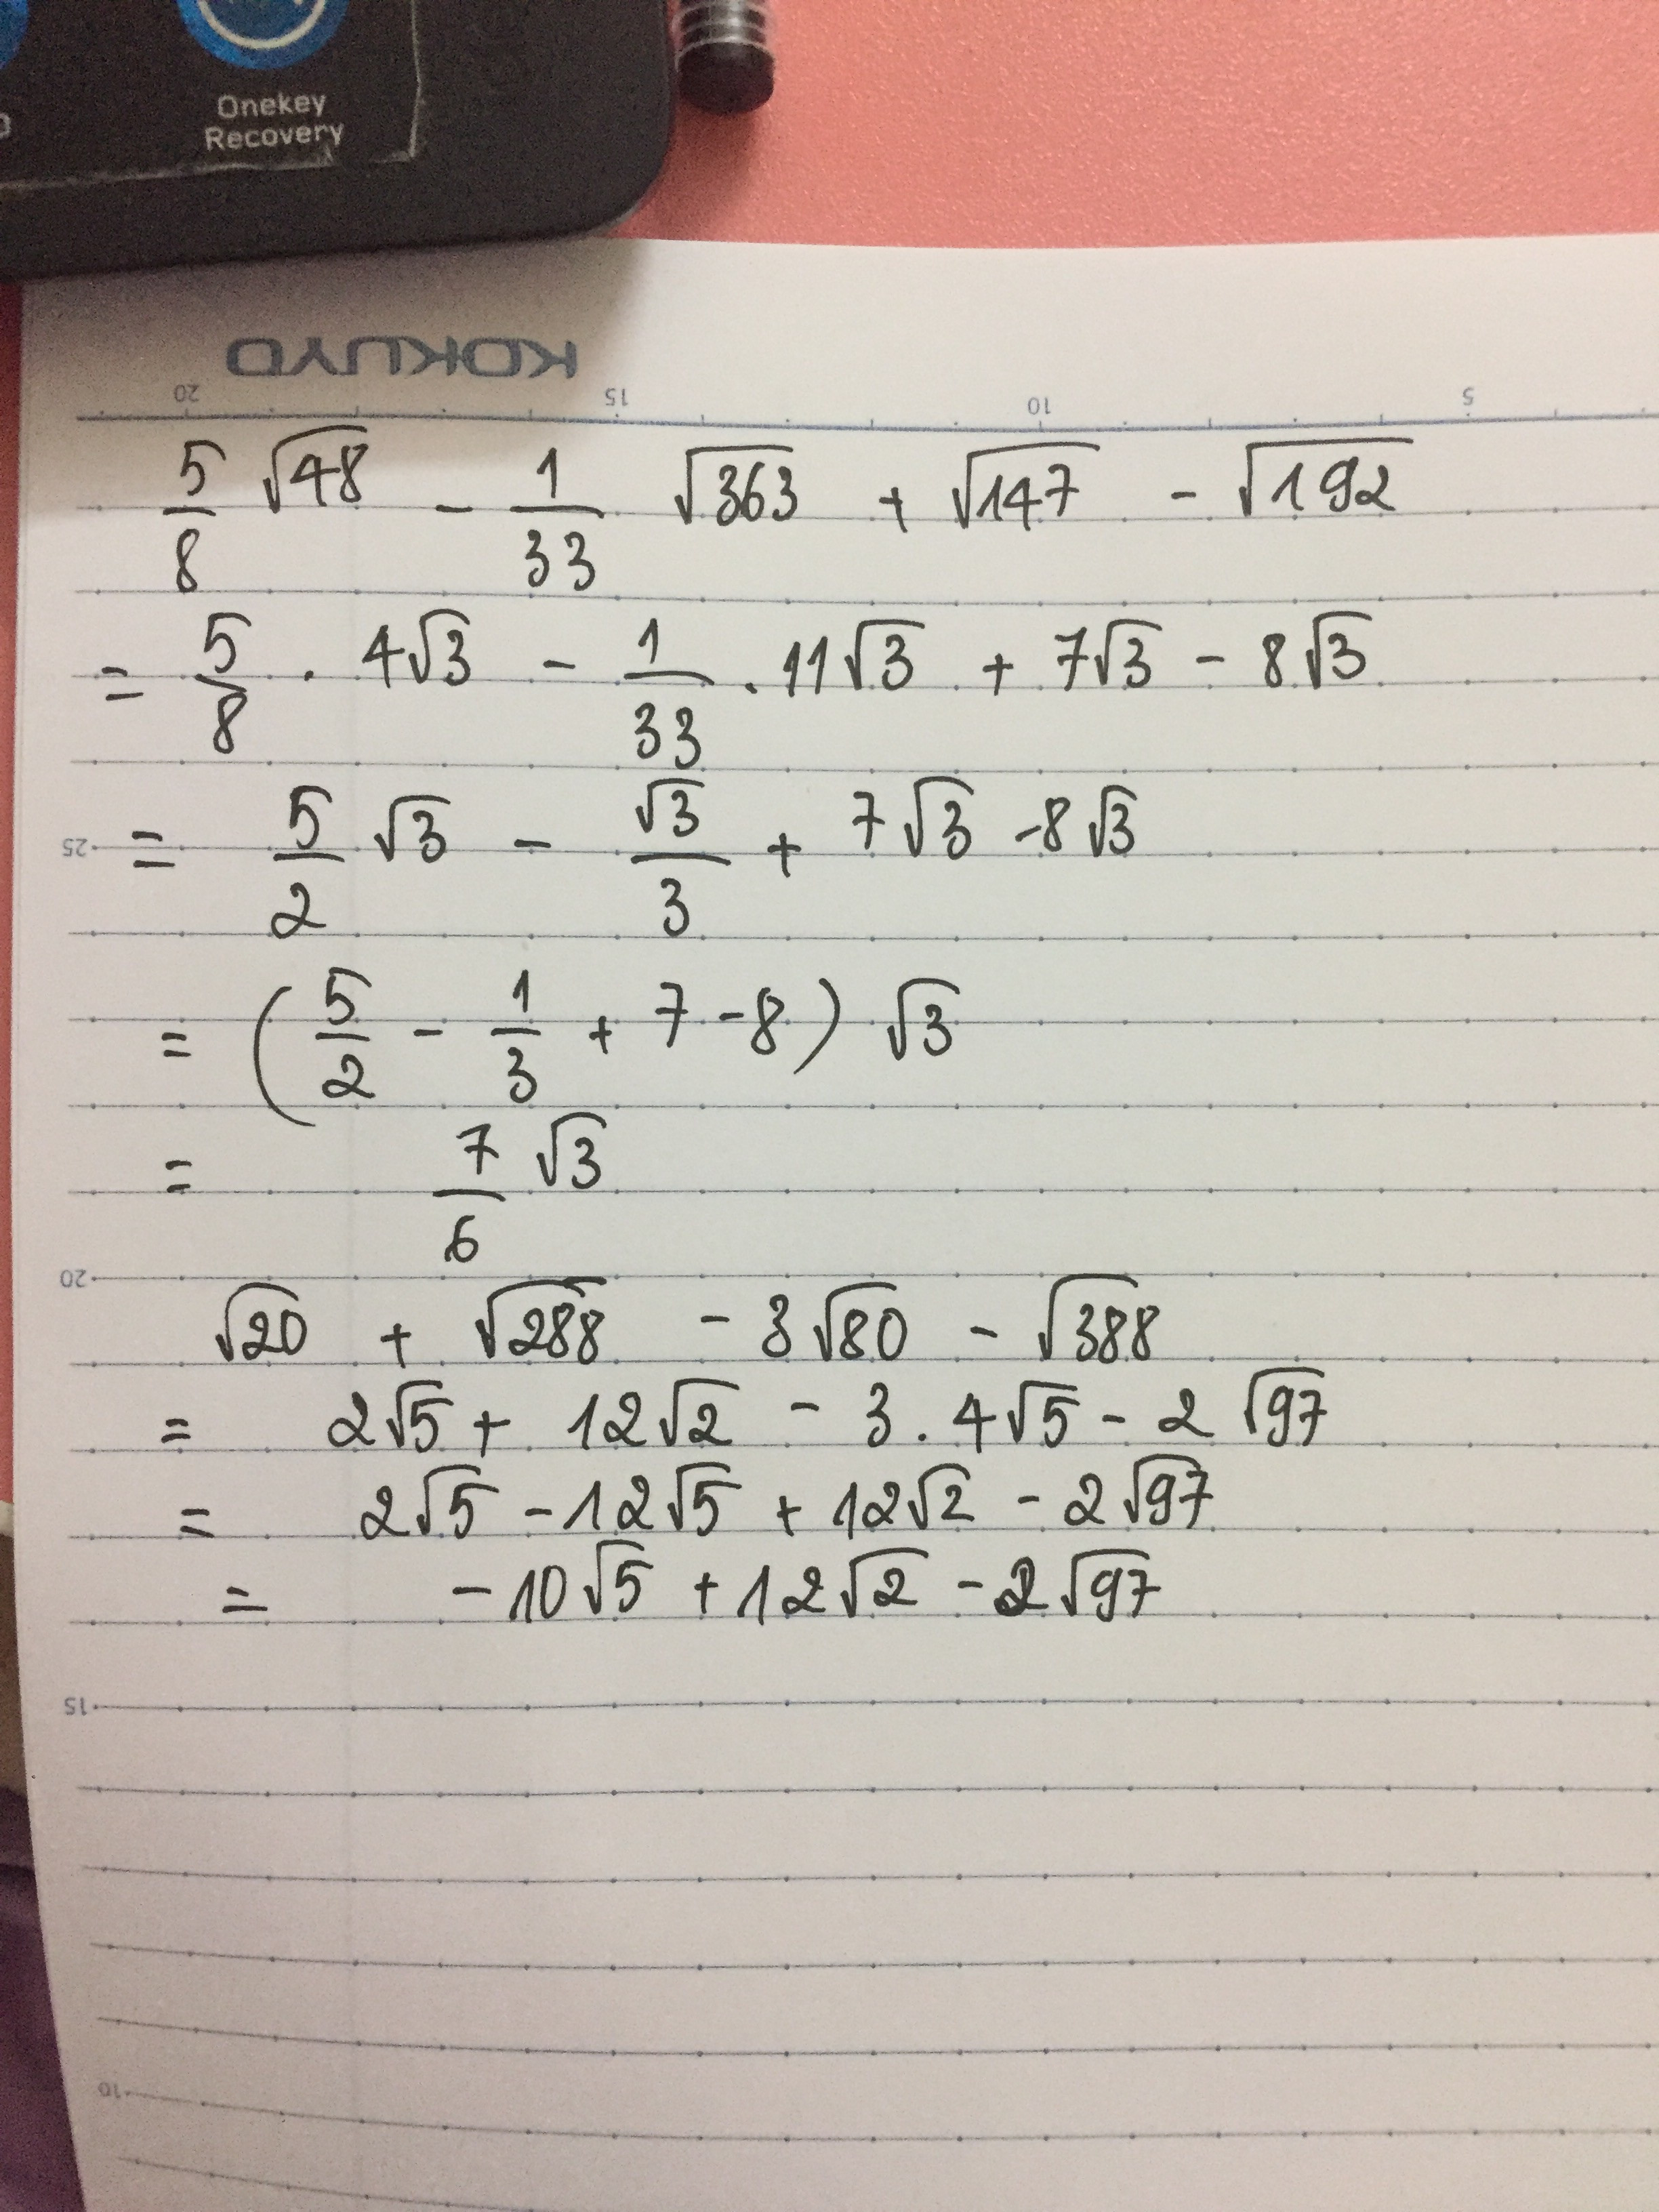 Onekey
Recovery
KOKUYO
20 15 10 5
5/8 √48 - 1/33 √363 + √147 - √192
= 5/8 . 4√3 - 1/33 . 11√3 + 7√3 - 8√3
25
= 5/2 √3 - √3/3 + 7√3 - 8√3
= (5/2 - 1/3 + 7 - 8) √3
= 7/6 √3
20
√20 + √288 - 3√80 - √388
= 2√5 + 12√2 - 3 . 4√5 - 2√97
= 2√5 - 12√5 + 12√2 - 2√97
= -10√5 + 12√2 - 2√97
15
10